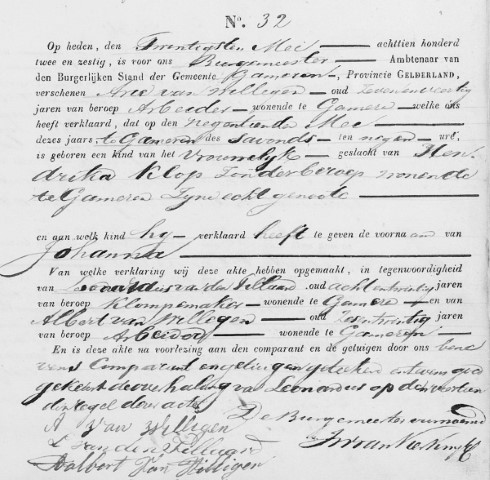 No. 32
Op heden, den Twintigsten Mei achttien honderd
twee en zestig, is voor ons Burgemeester Ambtenaar van
den Burgerlijken Stand der Gemeente Gameren, Provincie GELDERLAND,
verschenen Arie van Willigen oud Zevenenveertig
jaren van beroep Arbeider wonende te Gameren welke ons
heeft verklaard, dat op den negentienden Mei
dezes jaars te Gameren des savonds ten negen ure
is geboren een kind van het Vrouwelijk geslacht van Hen
drika Klop zonder beroep wonende
te Gameren Zyne echtgenoote
en aan welk kind hy verklaard heeft te geven de voornaam van
Johanna
Van welke verklaring wij deze akte hebben opgemaakt, in tegenwoordigheid
van Leonardus van den oud achtentwintig jaren
van beroep Klompemaker wonende te Gameren en van
Albert van Willigen oud jaren
van beroep Arbeider wonende te Gameren
En is deze akte na voorlezing aan den comparant en de getuigen door ons bene
vens Comparant en getuigen geteekend
gekeurd de overhaling van Leonardus op den veertien
den regel dezer acte
De Burgemeester voornoemd
A Van Willigen
L van den
Aalbert Van Willigen